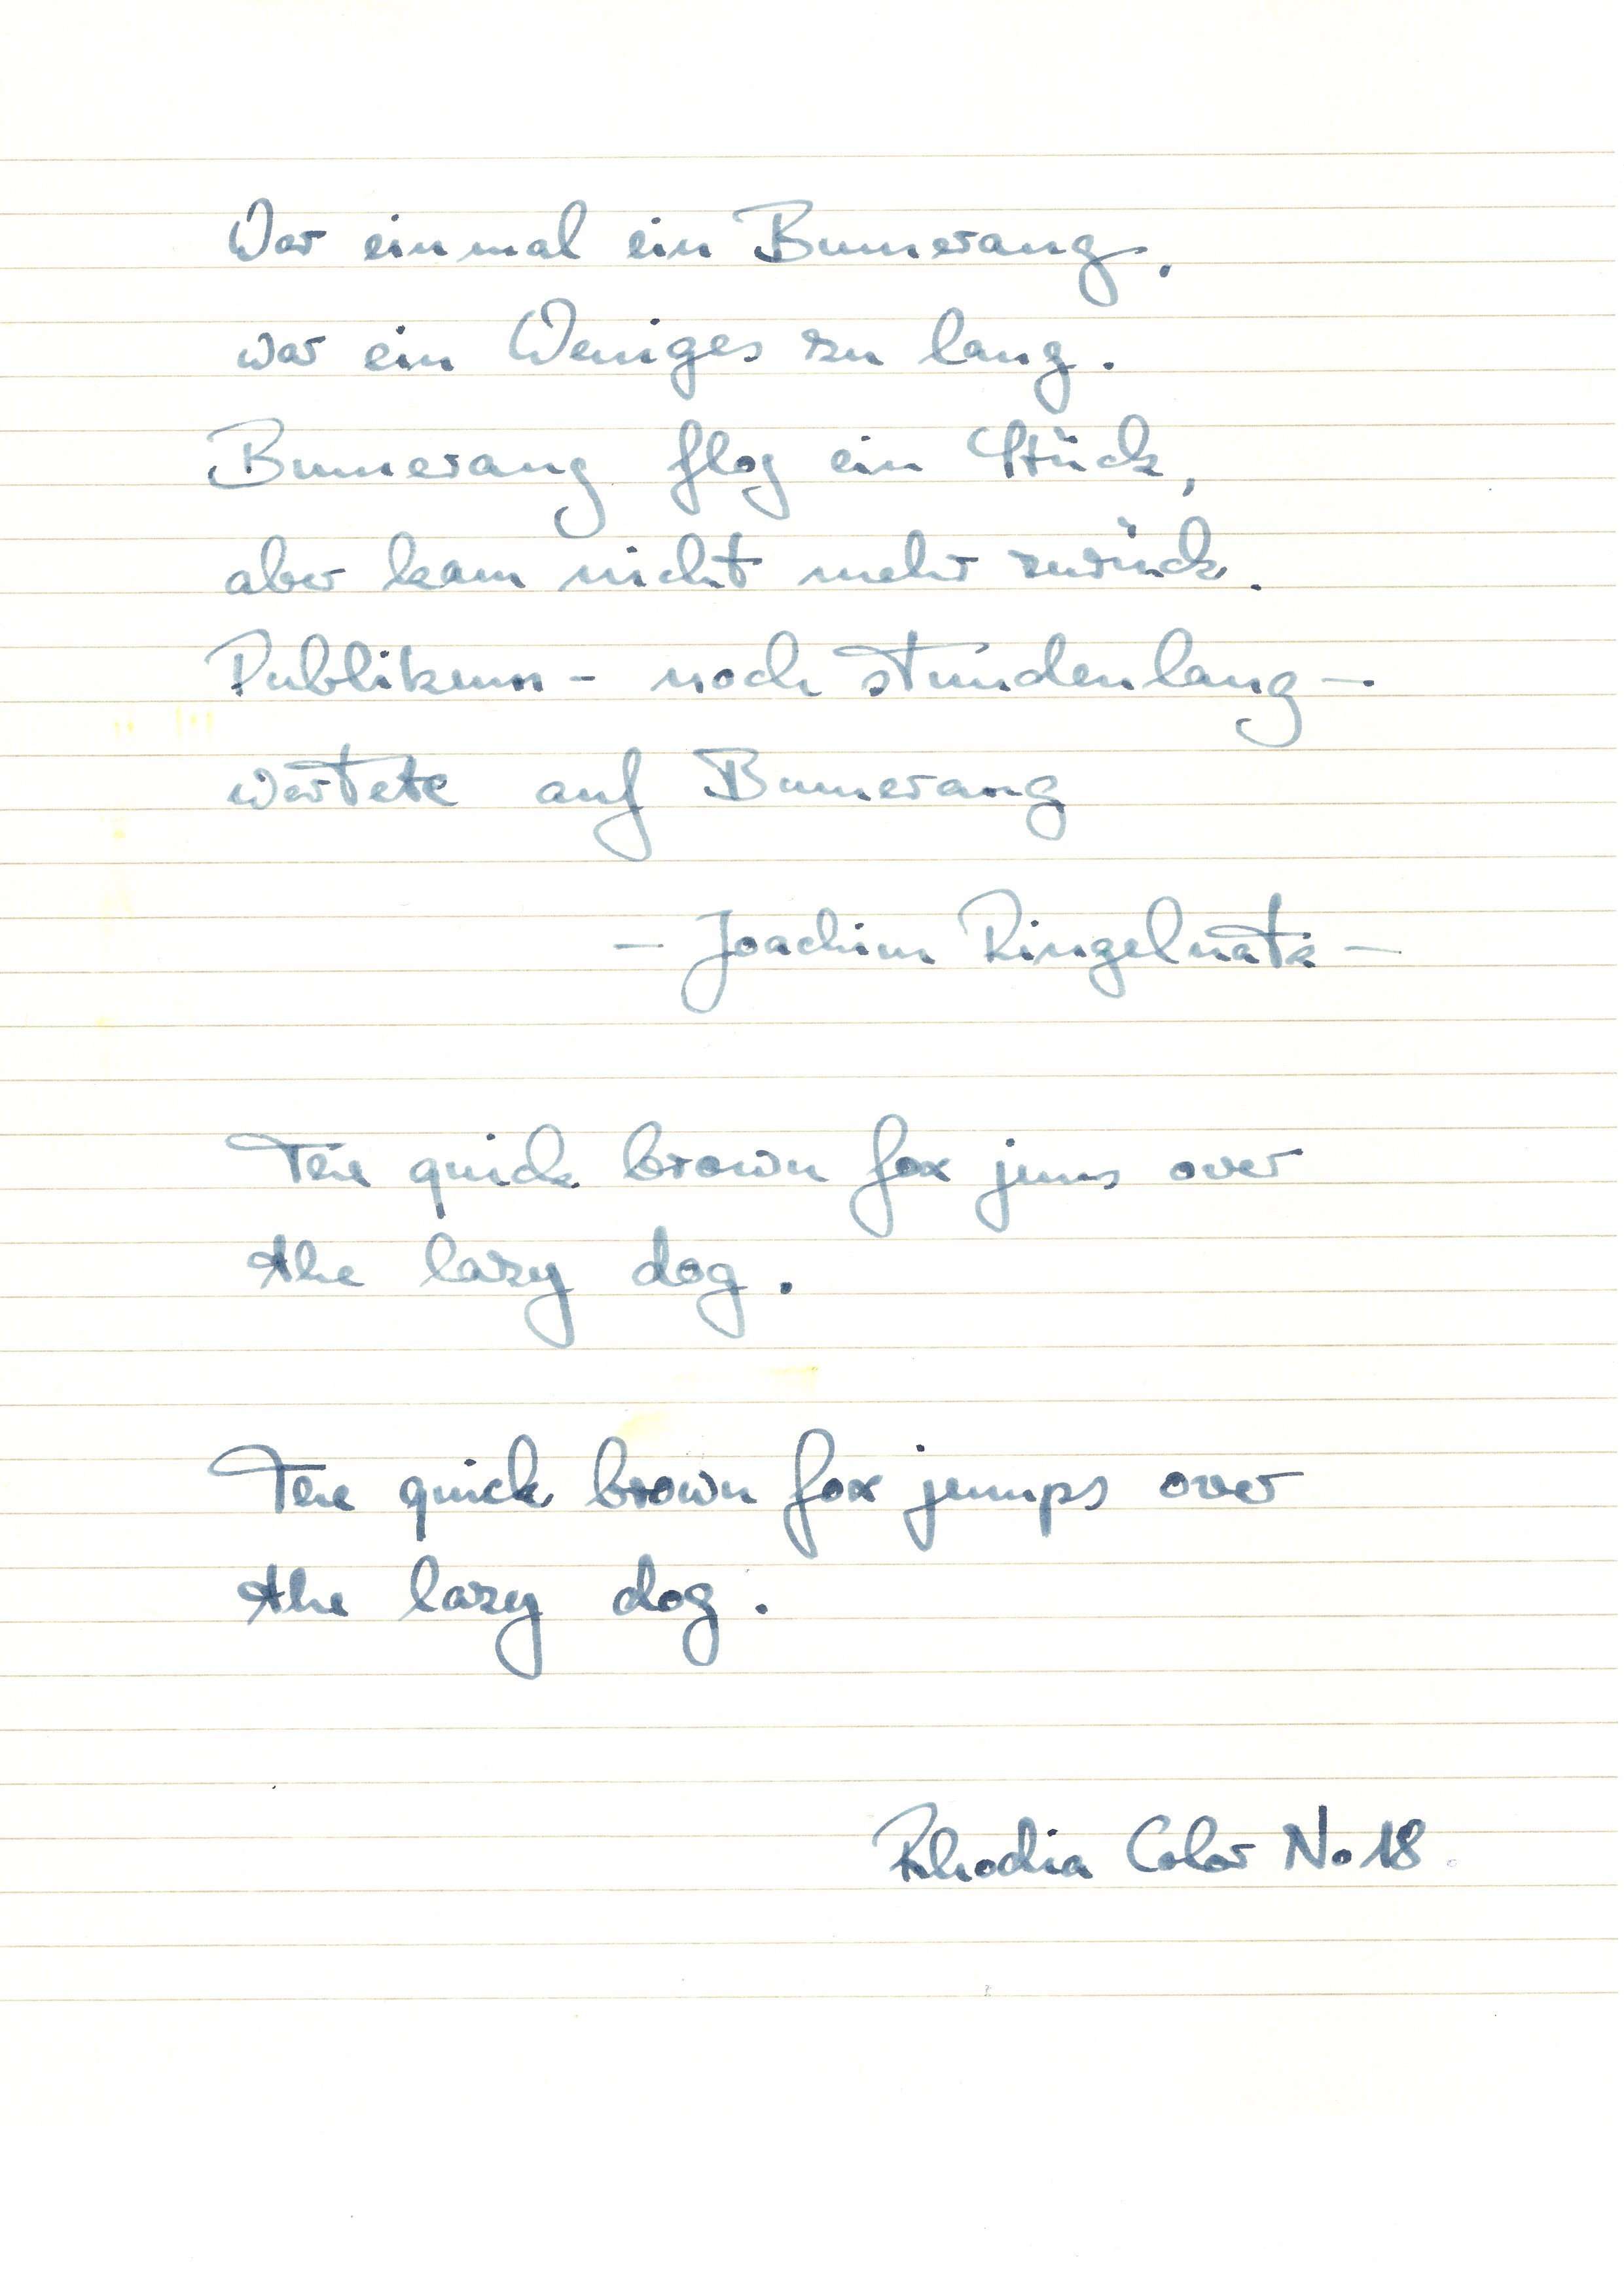 War einmal ein Bumerang,
war ein Weniges zu lang.
Bumerang flog ein Stück,
aber kam nicht mehr zurück.
Publikum - noch stundenlang -
wartete auf Bumerang
- Joachim Ringelnatz -
The quick brown fox jums over
the lazy dog.
The quick brown fox jumps over
the lazy dog.
Rhodia Color No 18